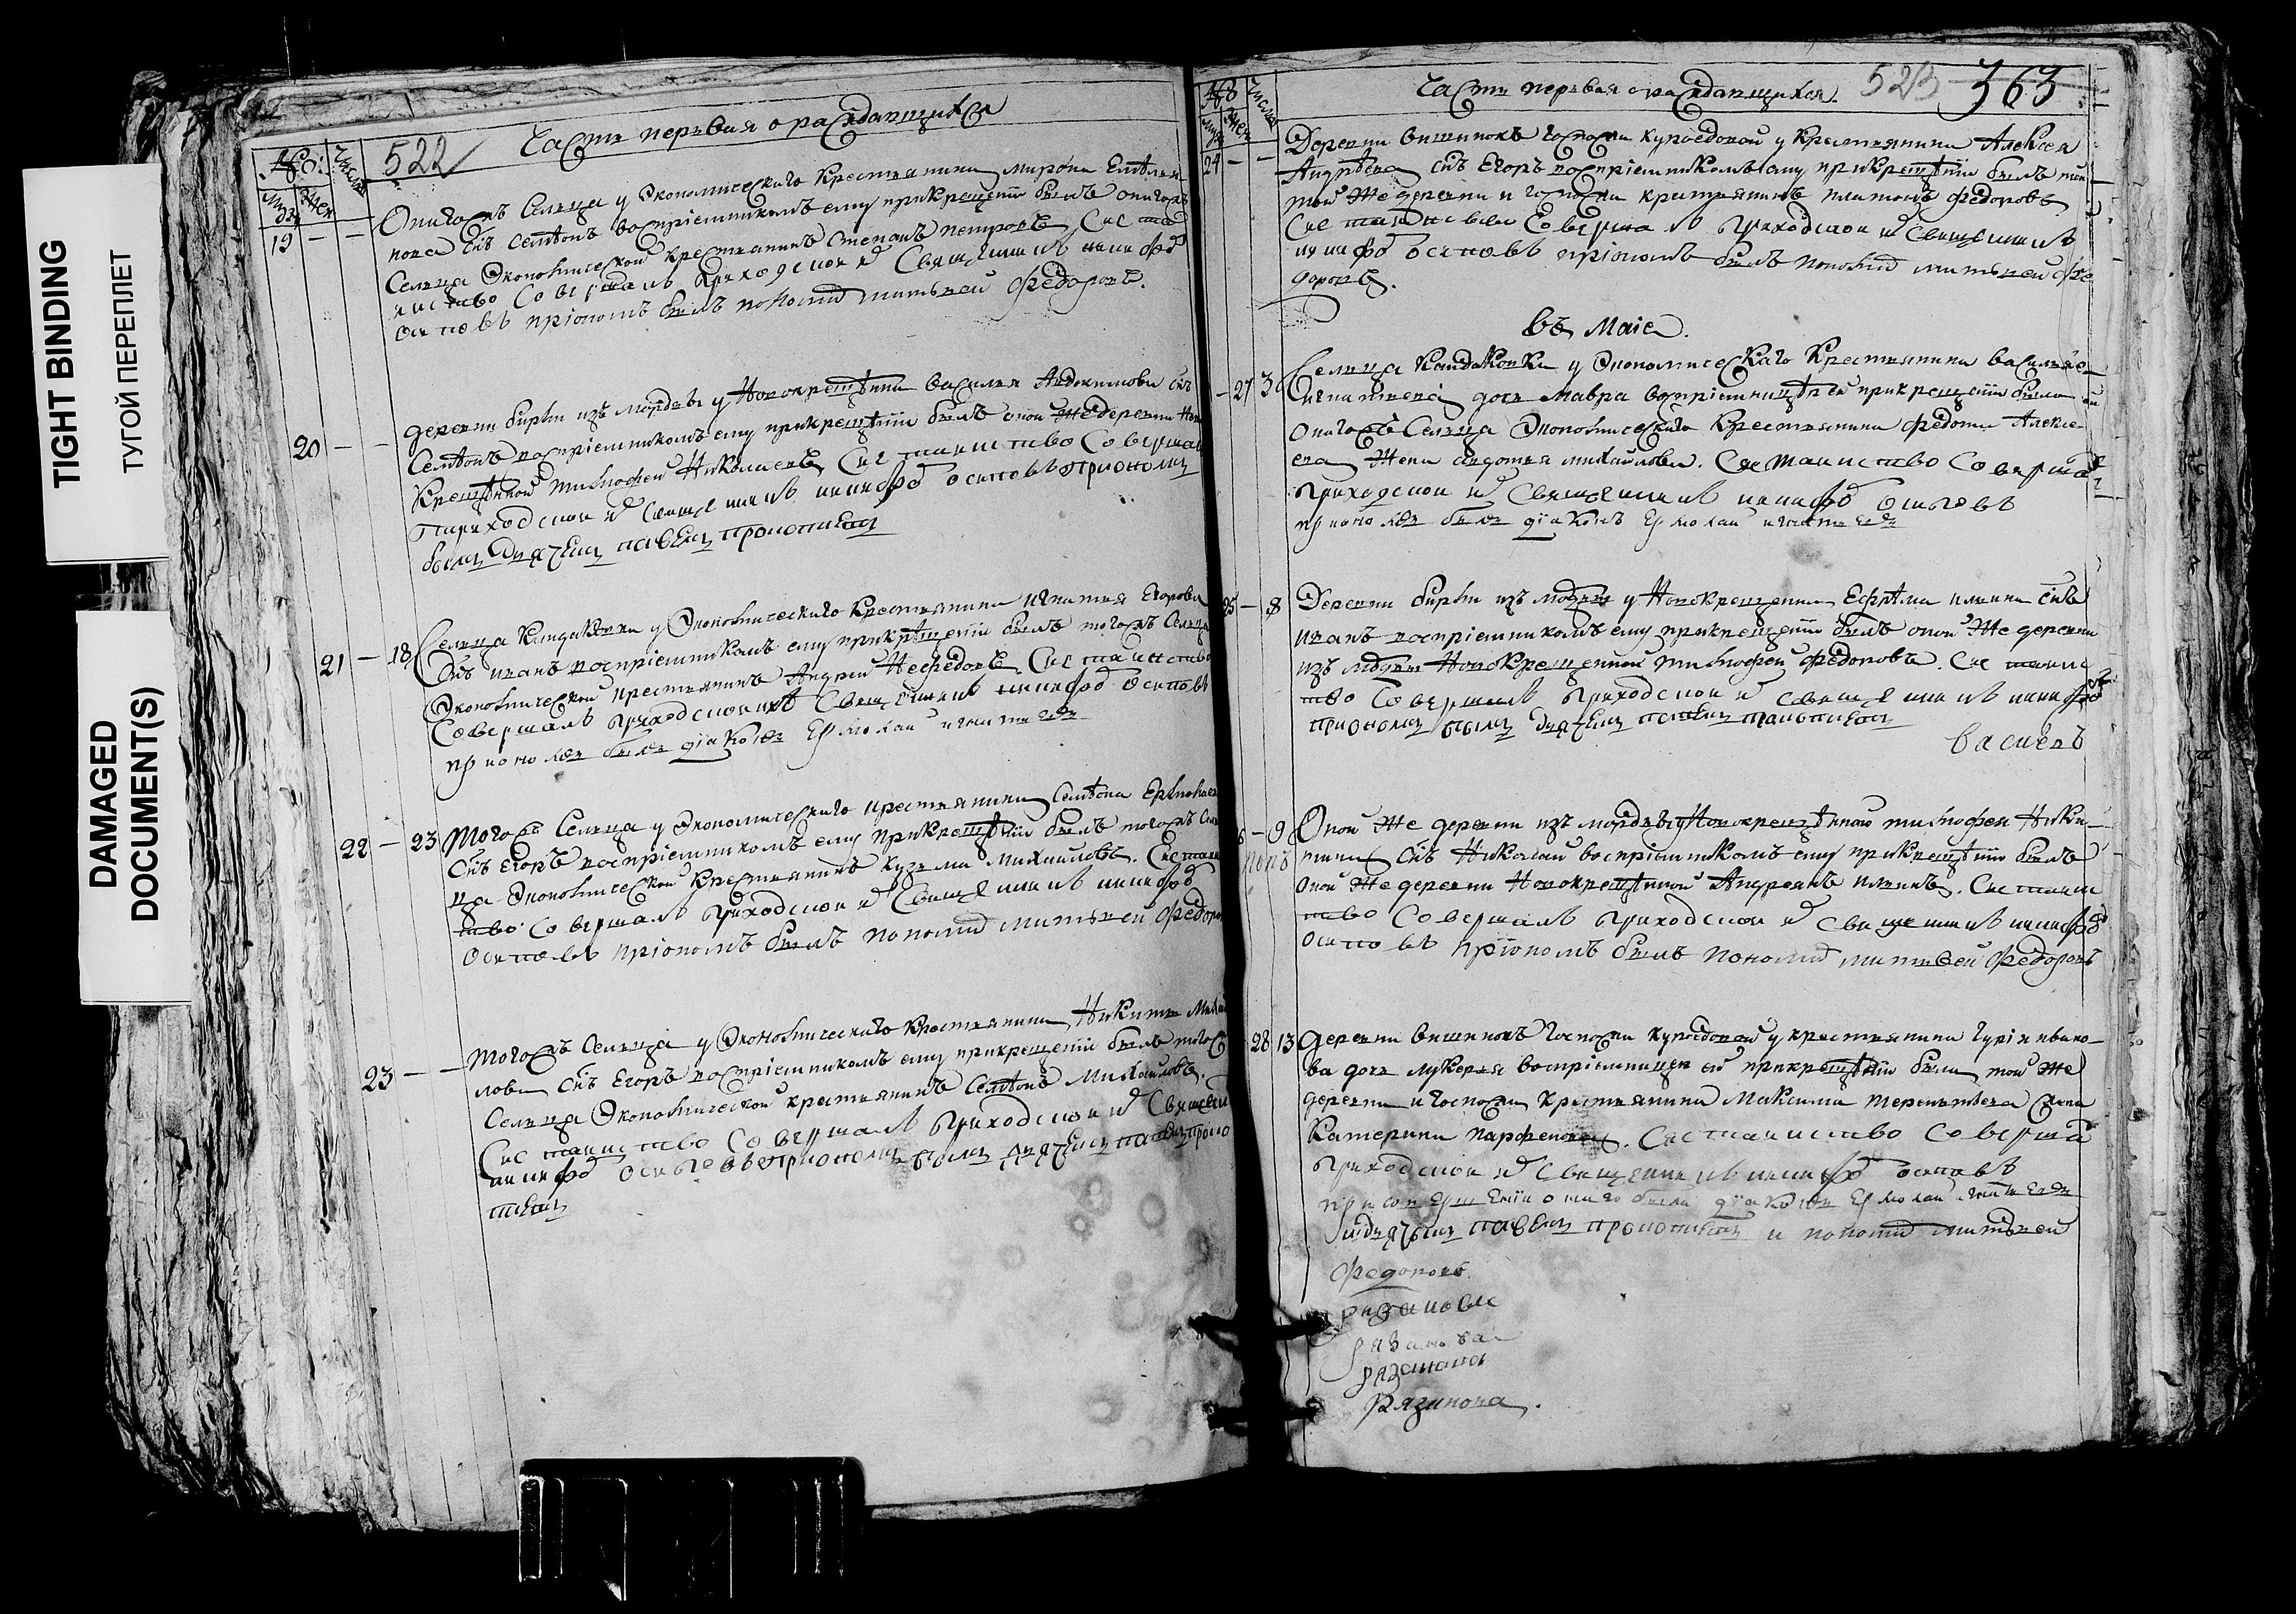 TIGHT BINDING
ТУГОЙ ПЕРЕПЛЕТ
DAMAGED
DOCUMENT(S)
522
Часть первая о раждающихся
№
числа
муж
жен
19 — —
Онагожъ Сельца у Экономического крестьянина Мирона Емелья
нова снъ Семѣонъ воспріемникомъ ему прикрещеніи былъ онагожъ
Сельца Экономической крестьянинъ Степанъ Петровъ Сие таи
нство Совершалъ приходской Священникъ никифо
осиповъ пріономъ былъ пономар матвей Федоровъ.
20 — —
деревни бирли изъ мордвы у Новокрещѣнна василья Авдокимова снъ
Семѣонъ воспріемникомъ ему прикрещѣніи былъ оной же деревни Ново
крещѣнной тимофей Николаевъ Сие таинство Соверша
приходской священникъ никифо осиповъ приономъ
былъ дьячекъ павелъ прокопьевъ
21 — 18
Сельца Кандаковки у Экономического крестьянина игнатья Егорова
Снъ иванъ воспріемникомъ ему прикрѣщеніи былъ тогожъ Сельца
Экономической крестьянинъ Андрей Нефедовъ Сие таинство
Совершалъ приходской Священникъ никифо осиповъ
приономъ былъ діаконъ Ермолай игнатьевъ
22 — 23
Тогожъ Сельца у Экономического крестьянина Семѣона Ермолаев
Снъ Егоръ воспріемникомъ ему прикрещѣніи былъ тогожъ Сель
ца Экономической крестьянинъ кузьма Михайловъ. Сие таин
ство Совершалъ приходской Священникъ никифо
осиповъ пріономъ былъ пономар матвей Федоро
23 — —
Тогожъ Сельца у Экономического крестьянина Никиты Михай
лова снъ Егоръ воспріемникомъ ему прикрещеніи былъ тогожъ
Сельца Экономической крестьянинъ Семѣонъ Михайловъ.
Сие таинство Совершалъ приходской Священн
никифо осиповъ приономъ былъ дьячекъ павелъ проко
пьевъ
№
числа
муж
жен
Часть первая о раждающихся.
523
363
24 — —
Деревни вишенокъ госпожи куроедовой у крестьянина Алексея
Андрѣева снъ Егоръ воспріемникомъ ему прикрещѣніи былъ той
же деревни и госпожи крестьянинъ платонъ Федоровъ
Сие таинство Совершалъ приходской Священникъ
никифо осиповъ пріономъ былъ пономар матвей фе
доровъ.
въ Маіе.
— 27 3
Сельца Кандаковки у Экономическаго крестьянина василья
дочь мавра воспріемницѣю прикрещеніи была ей
онагожъ Сельца Экономическаго крестьянина федота Алексе
ева жена авдотья михайлова. Сие таинство Соверша
приходской Священникъ никифо осиповъ
приономъ былъ діаконъ Ермолай игнатьевъ
25 — 8
Деревни бирли изъ мордвы у Новокрещенна Ефрѣма ильина снъ
иванъ воспріемникомъ ему прикрещеніи былъ оной же деревни
изъ мордвы Новокрещенной тимофей Федоровъ. Сие таинс
тво Совершалъ приходской священникъ никифо
приономъ былъ дьячекъ павелъ прокопьевъ
василевъ
6 — 9
Оной же деревни изъ мордвы у Новокрещѣнного тимофея Ники
тина снъ Николай воспріемникомъ ему прикрещѣніи былъ
оной же деревни Новокрещѣнной Андреянъ ильинъ. Сие таин
ство Совершалъ приходской священникъ никифо
осиповъ пріономъ былъ пономар матвей Федоровъ
28 13
деревни вишенокъ госпожи куроедовой у крестьянина гурія ивано
ва дочь лукерья воспріемницей ей прикрещѣніи была той же
деревни и госпожи крестьянина Максима терентьева жена
Катерина парфенова. Сие таинство Соверша
приходской священникъ никифо осиповъ
присовершеніи онаго были діаконъ Ермолай игнатьевъ
идьячекъ павелъ прокопьевъ и пономар матвей
Федоровъ.
Рязанова
рязанова
рязанова
Рязанова.